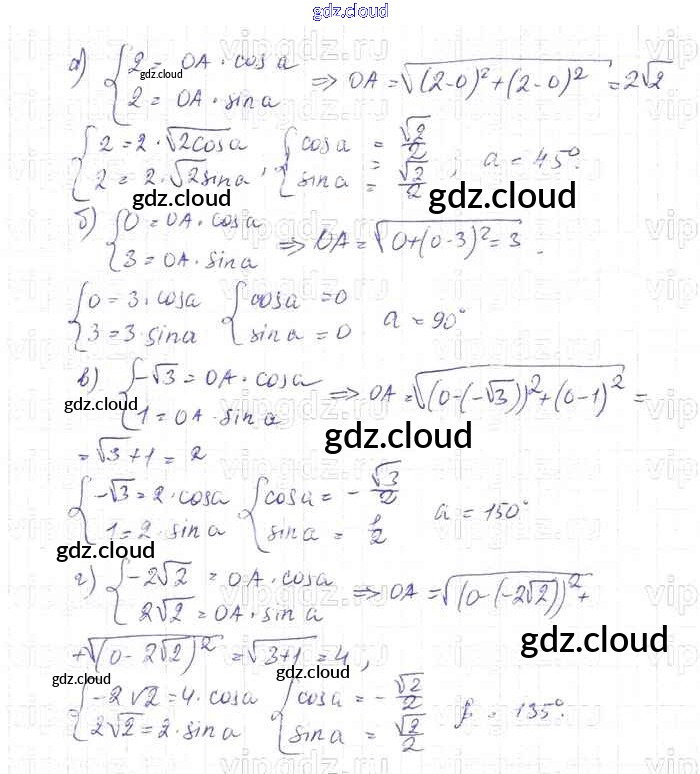 gdz.cloud
а) { 2 = OA · cos a
2 = OA · sin a ⇒ OA = √((2-0)² + (2-0)²) = 2√2
gdz.cloud
{ 2 = 2 · √2cos a
2 = 2 · √2 sin a , { cos a = √2/2
sin a = √2/2 , a = 45°.
gdz.cloud gdz.cloud
б) { 0 = OA · cos a
3 = OA · sin a ⇒ OA = √(0+(0-3)² = 3 .
{ 0 = 3 · cos a
3 = 3 · sin a { cos a = 0
sin a = 0 a = 90°
в) { -√3 = OA · cos a
1 = OA · sin a ⇒ OA = √((0-(-√3))² + (0-1)²) =
gdz.cloud gdz.cloud
= √3+1 = 2
{ -√3 = 2 · cos a
1 = 2 · sin a { cos a = - √3/2
sin a = 1/2 a = 150°
gdz.cloud
г) { -2√2 = OA · cos a
2√2 = OA · sin a ⇒ OA = √((0-(-2√2))² +
gdz.cloud
+ √(0-2√2)² = √3+1 = 4,
gdz.cloud
{ -2√2 = 4 · cos a
2√2 = 2 · sin a { cos a = - √2/2
sin a = √2/2 β = 135°.
gdz.cloud